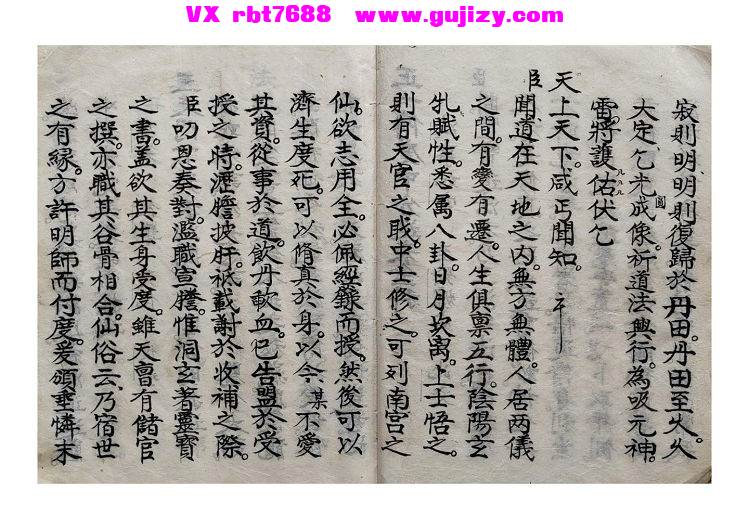 VX rbt7688 www.gujizy.com
寂則明、明則復歸於丹田。丹田至久、久
大定、乞光成圓像。祈道法興行。為吸元神。
雷將護佑伏乞
天上天下。咸丐聞知。
臣聞道在天地之內。無方無體。人居两儀
之間。有變有遷。人生俱禀五行。陰陽玄
牝賦性。悉属八卦。日月坎离。上士悟之。
則有天官之戝。中士修之。可列南宫之
仙。欲志用全。必佩經籙而授。然後可以
濟生度死。可以脩真於身。以今某不愛
其資。從事於道。飲丹歃血。已告盟於受
授之時。瀝膽披肝。祗載謝於收補之際。
臣叨恩奏對。濫職宣謄。惟洞玄著靈寶
之書。盖欲其生身受度。雖天曹有儲官
之撰。亦職其谷骨相合。仙俗云、乃宿世
之有緣。方許明師而付度。爰頒垂憐末